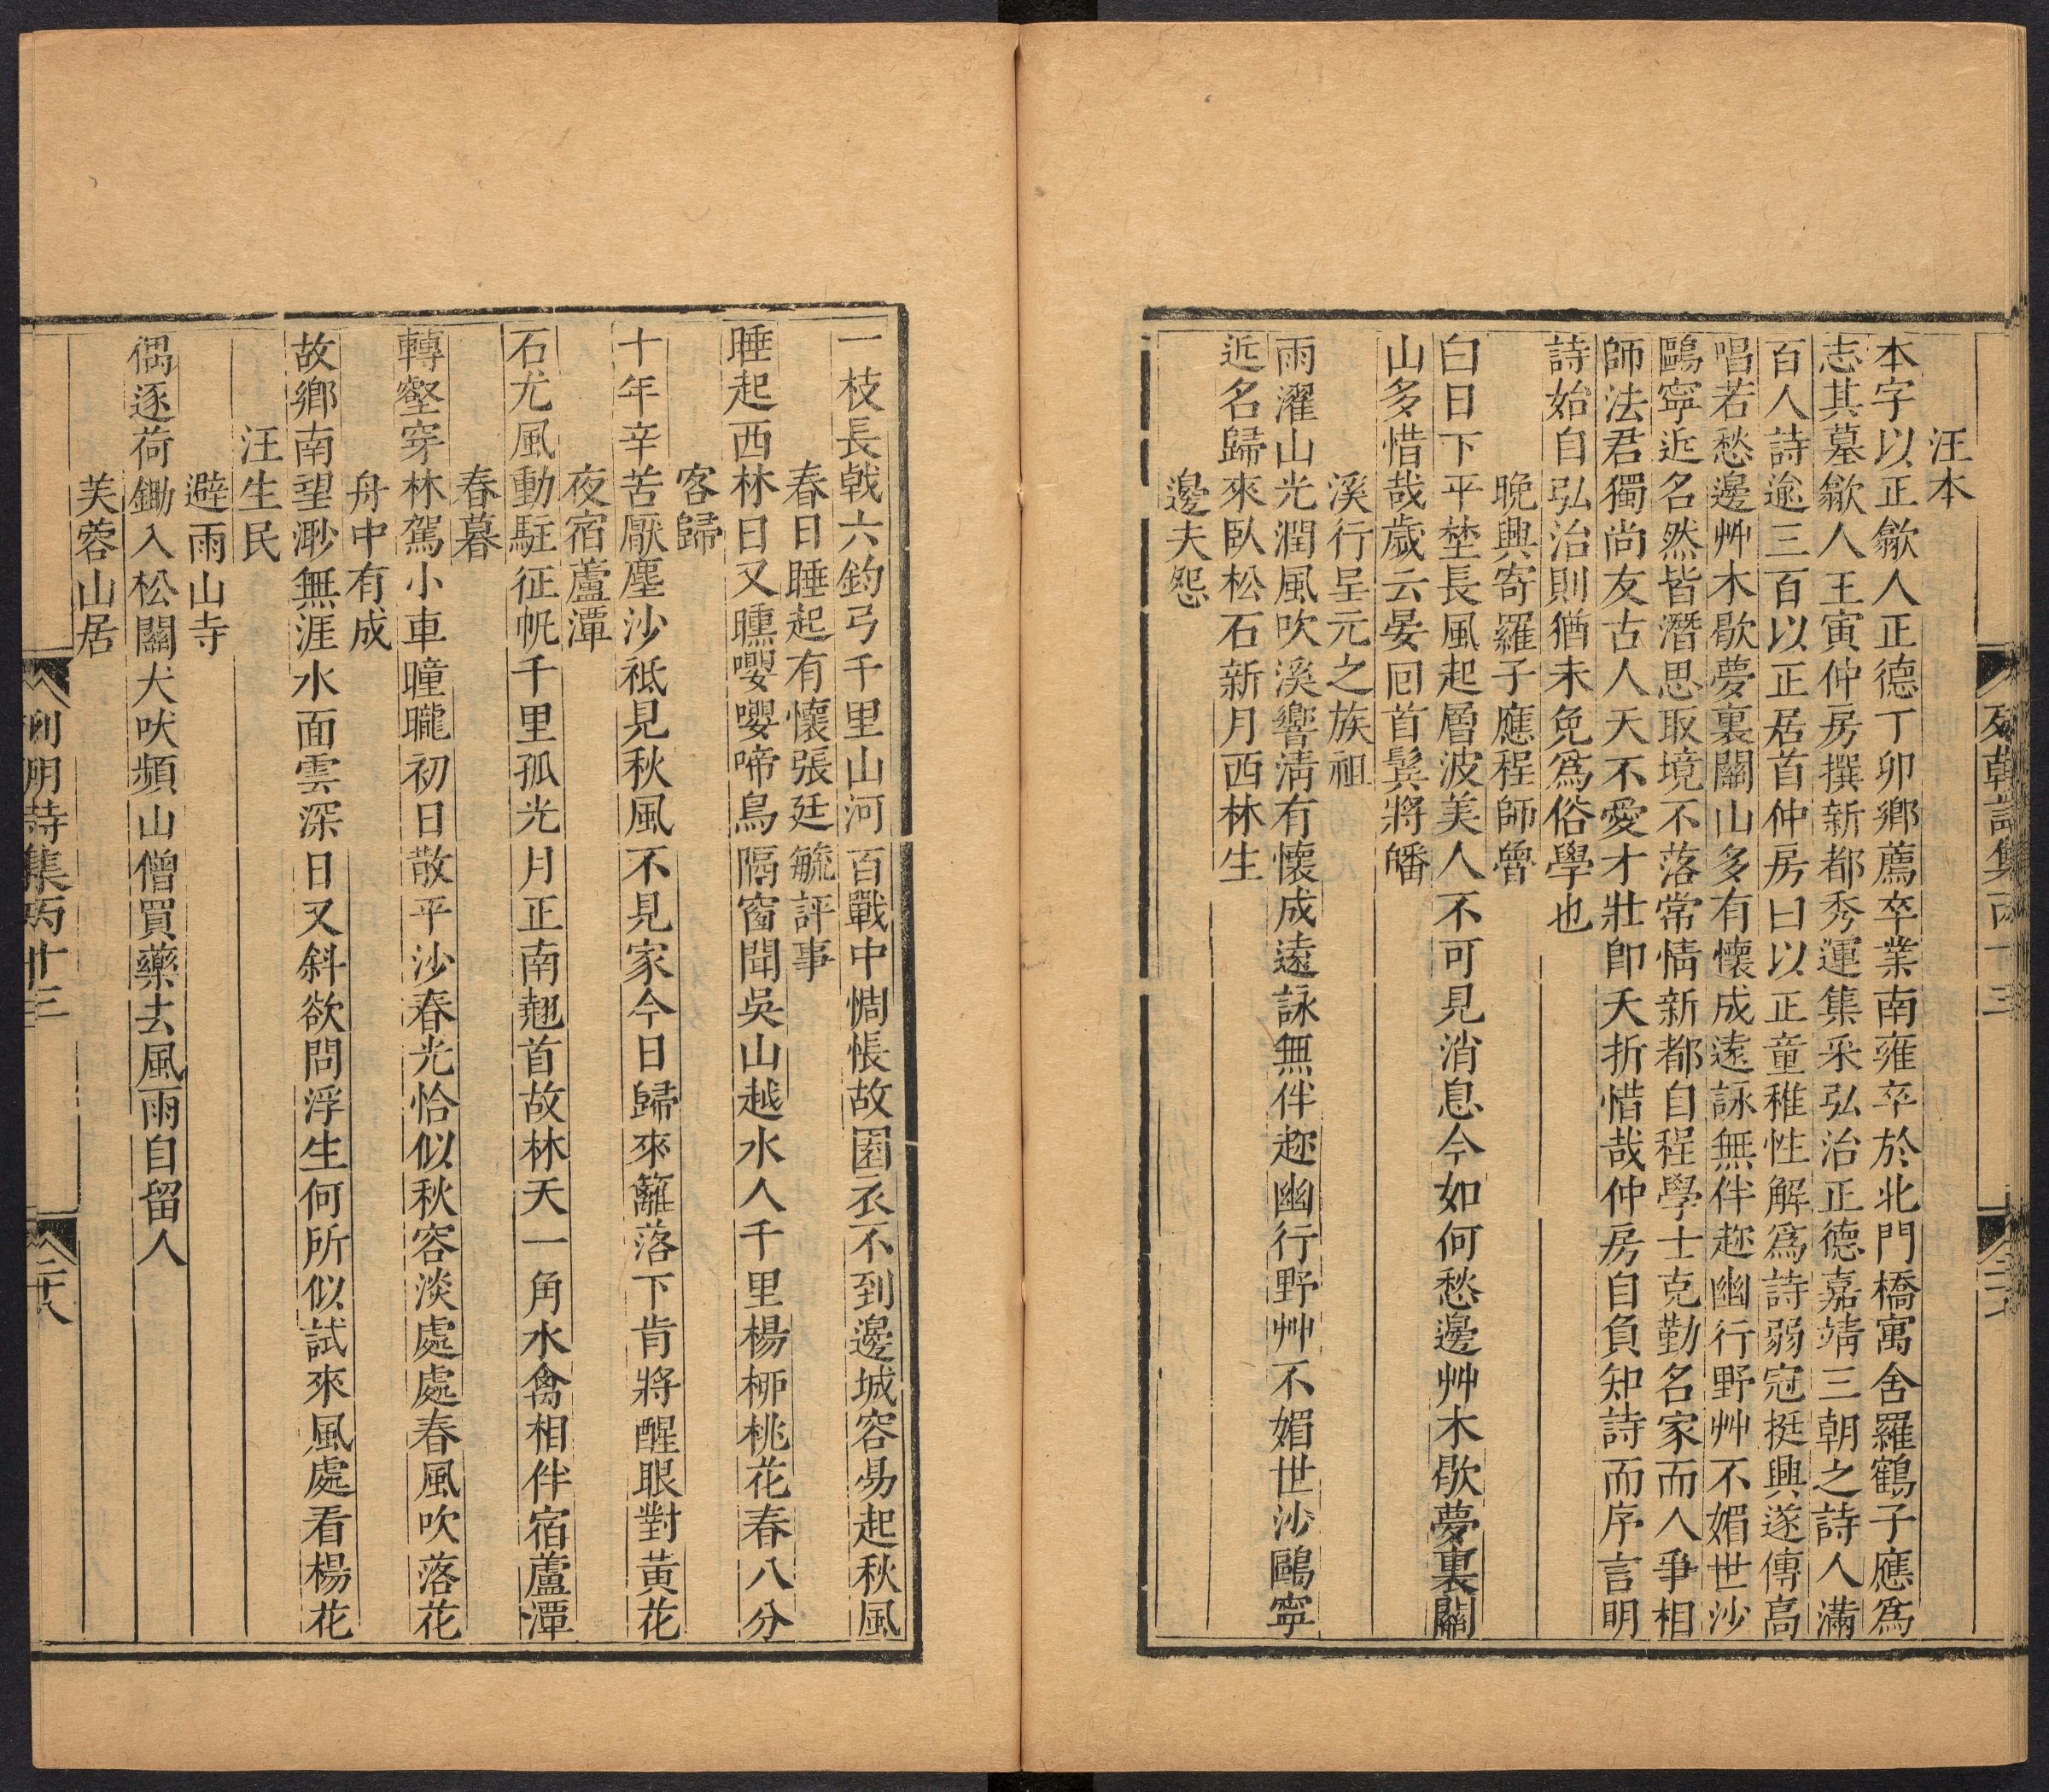 列朝詩集丙十三
汪本
本字以正歙人正德丁卯鄉薦卒業南雍卒於北門橋寓舍羅鶴子應爲
志其墓歙人王寅仲房撰新都秀運集采弘治正德嘉靖三朝之詩人滿
百人詩逾三百以正居首仲房曰以正童稚性解爲詩弱冠挺興遂傳高
唱若愁邊艸木歇夢裏關山多有懷成遠詠無伴趂幽行野艸不媚世沙
鷗寧近名然皆潛思取境不落常情新都自程學士克勤名家而人爭相
師法君獨尚友古人天不愛才壯卽夭折惜哉仲房自負知詩而序言明
詩始自弘治則猶未免爲俗學也
晚興寄羅子應程師魯
白日下平埜長風起層波美人不可見消息今如何愁邊艸木歇夢裏關
山多惜哉歲云晏囘首鬂將皤
溪行呈元之族祖
雨濯山光潤風吹溪響淸有懷成遠詠無伴趂幽行野艸不媚世沙鷗寧
近名歸來臥松石新月西林生
邊夫怨
一枝長戟六鈞弓千里山河百戰中惆悵故園衣不到邊城容易起秋風
春日睡起有懷張廷毓評事
睡起西林日又曛嚶嚶啼鳥隔窗聞吳山越水人千里楊柳桃花春八分
客歸
十年辛苦厭塵沙祗見秋風不見家今日歸來籬落下肯將醒眼對黃花
夜宿蘆潭
石尤風動駐征帆千里孤光月正南翹首故林天一角水禽相伴宿蘆潭
春暮
轉壑穿林駕小車曈曨初日散平沙春光恰似秋容淡處處春風吹落花
舟中有成
故鄉南望渺無涯水面雲深日又斜欲問浮生何所似試來風處看楊花
汪生民
避雨山寺
偶逐荷鋤入松關犬吠頻山僧買藥去風雨自留人
芙蓉山居
列朝詩集丙十三
二十八